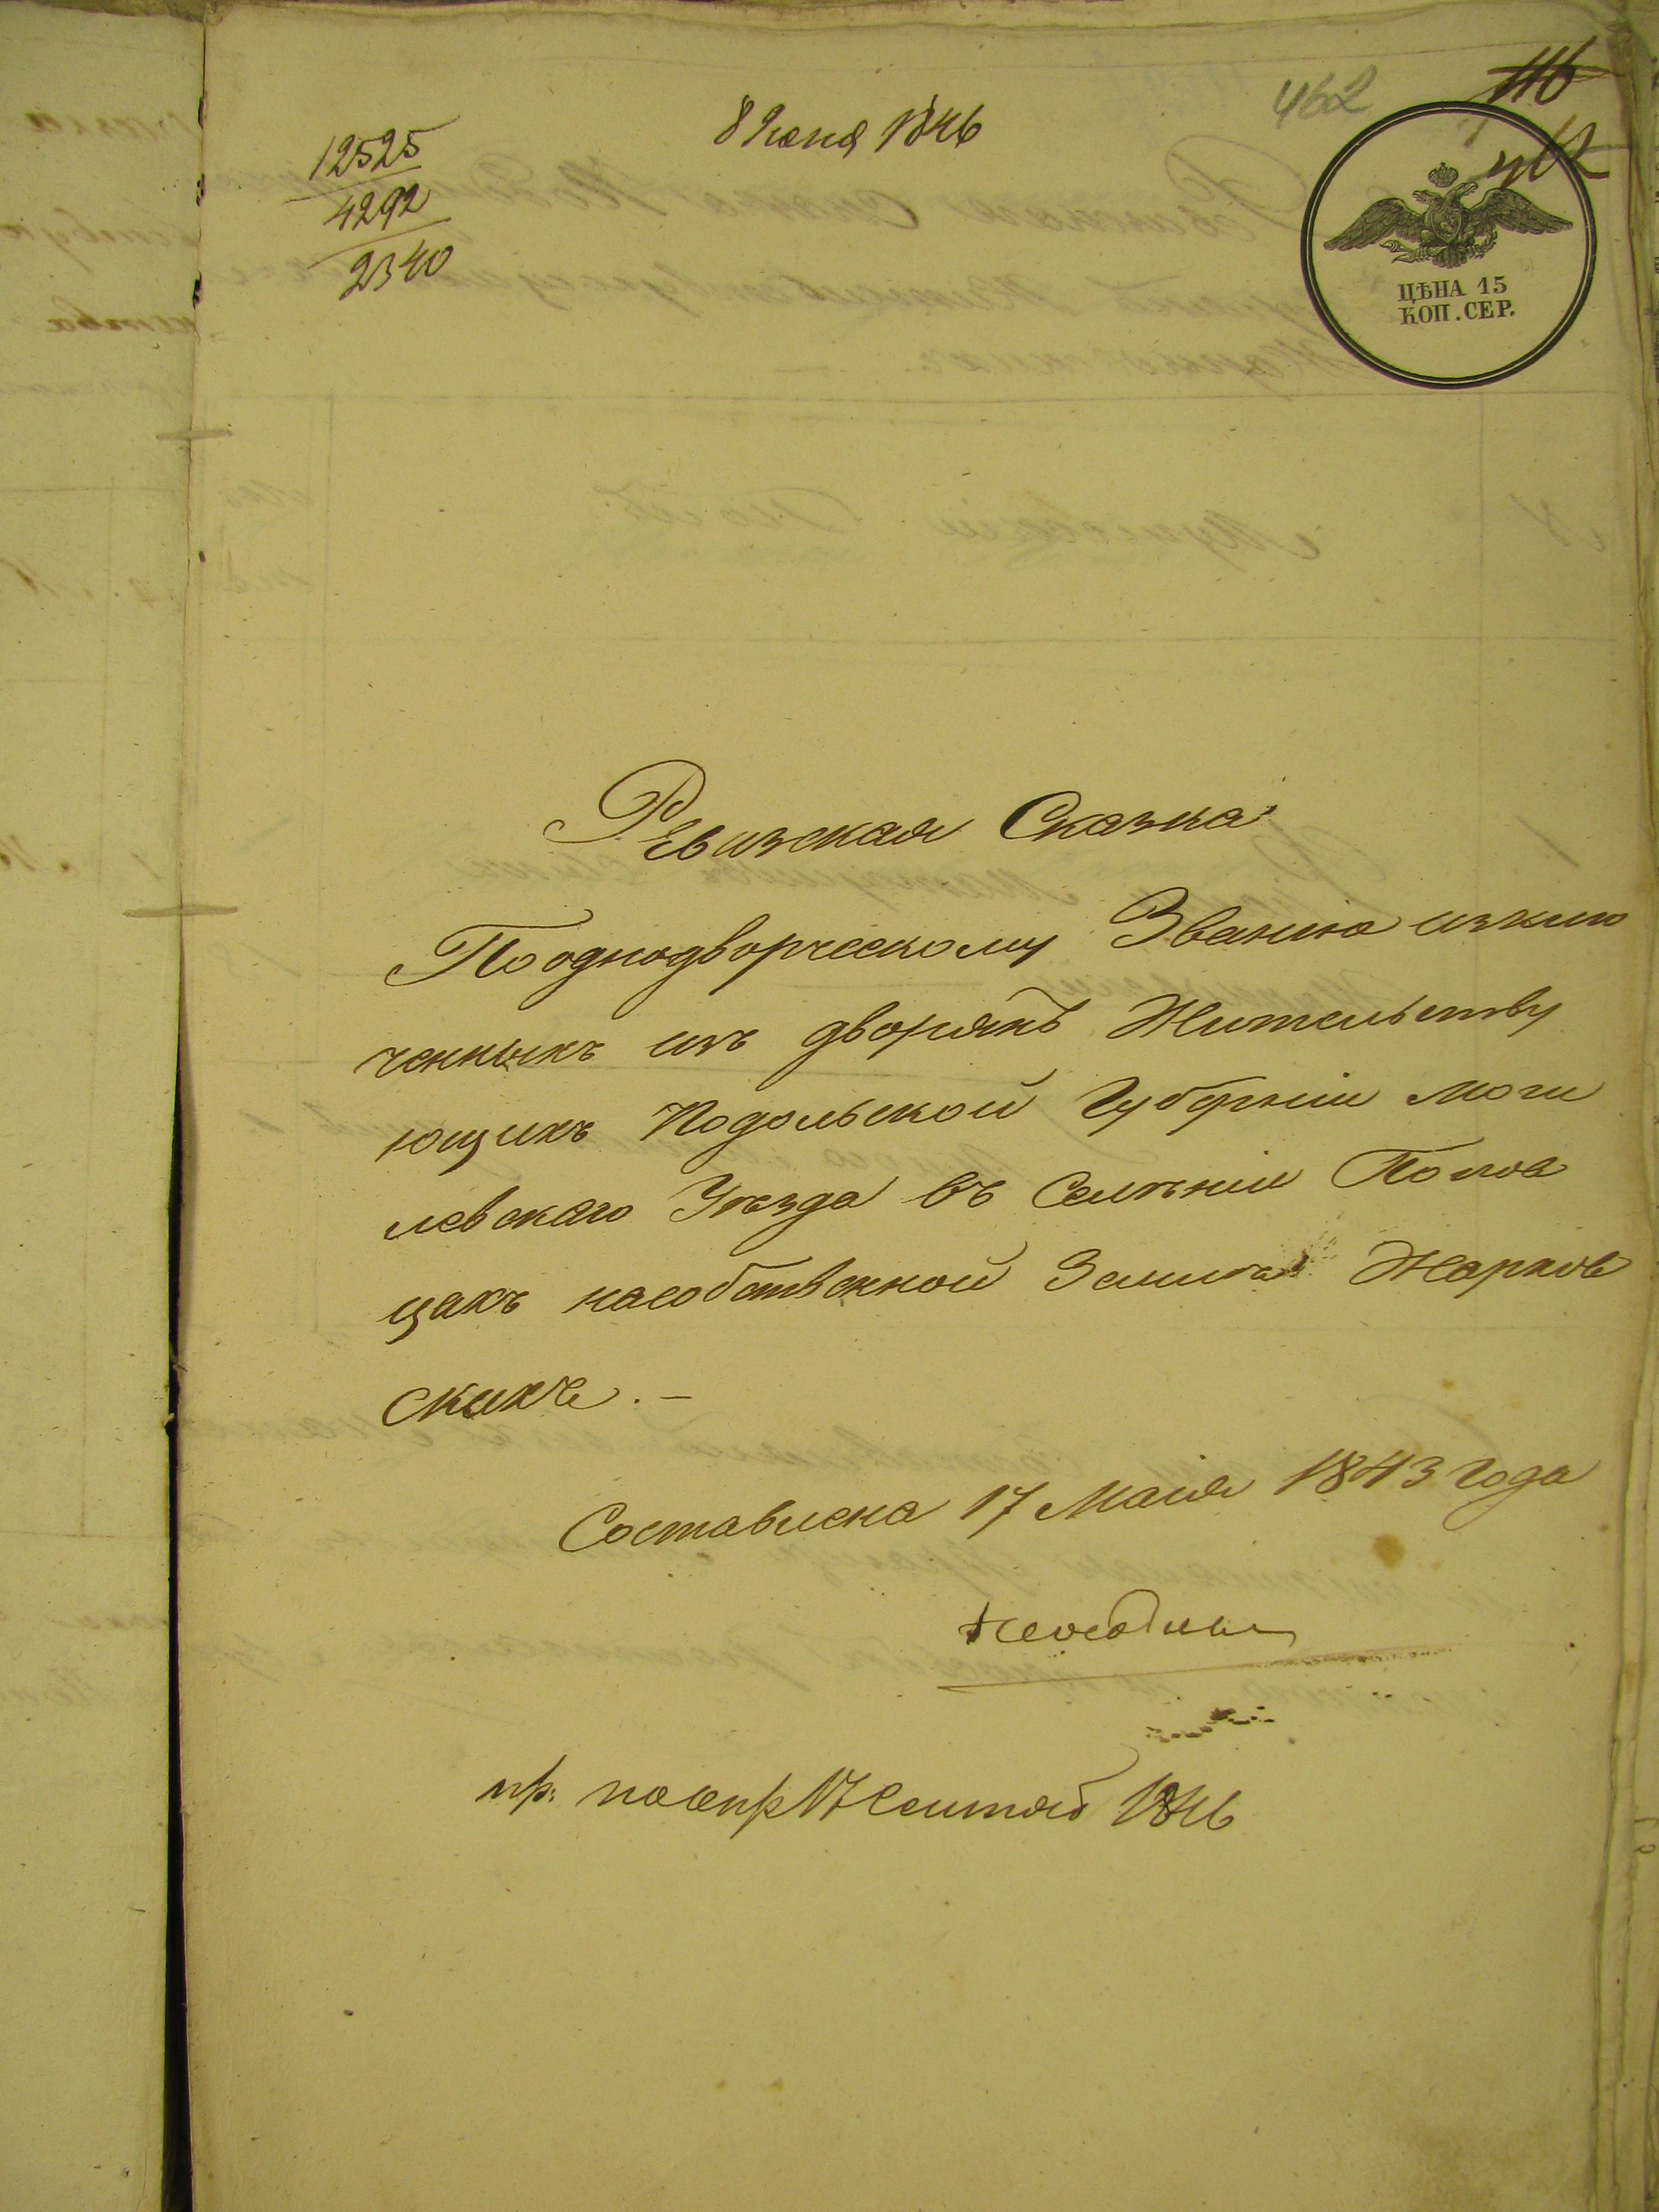 8 Июня 1846
462
116
462
12525
4292
2340
ЦѢНА 15
КОП. СЕР.
Ревизская Сказка
По однодворческому Званию изклю
ченныхъ изъ дворянъ Жительству
ющихъ Подольской Губерніи Моги
левскаго Уѣзда въ Селѣніи Попов
цахъ насобственной Землѣ Жарков
скихъ. —
Составлена 17 Маія 1843 Года
пр. 17 Сентяб 1846